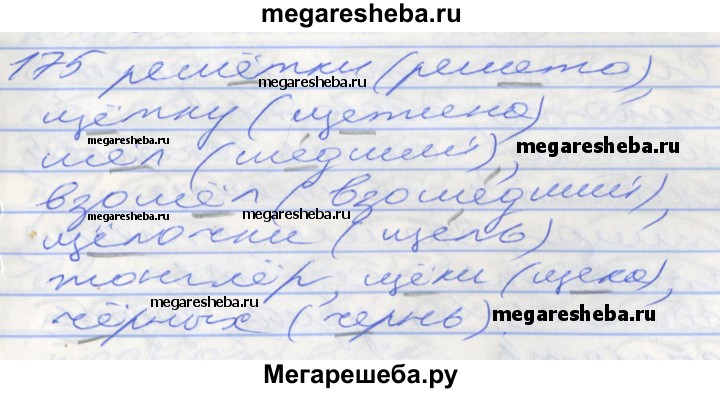 megaresheba.ru
175 решётки (решето),
megaresheba.ru
щётку (щетина)
megaresheba.ru
megaresheba.ru
шёл (шедший),
megaresheba.ru
взошёл (взошедший),
megaresheba.ru
щёлочки (щель)
жонглёр, щёки (щека),
megaresheba.ru
megaresheba.ru
чёрных (чернь).
Мегарешеба.ру